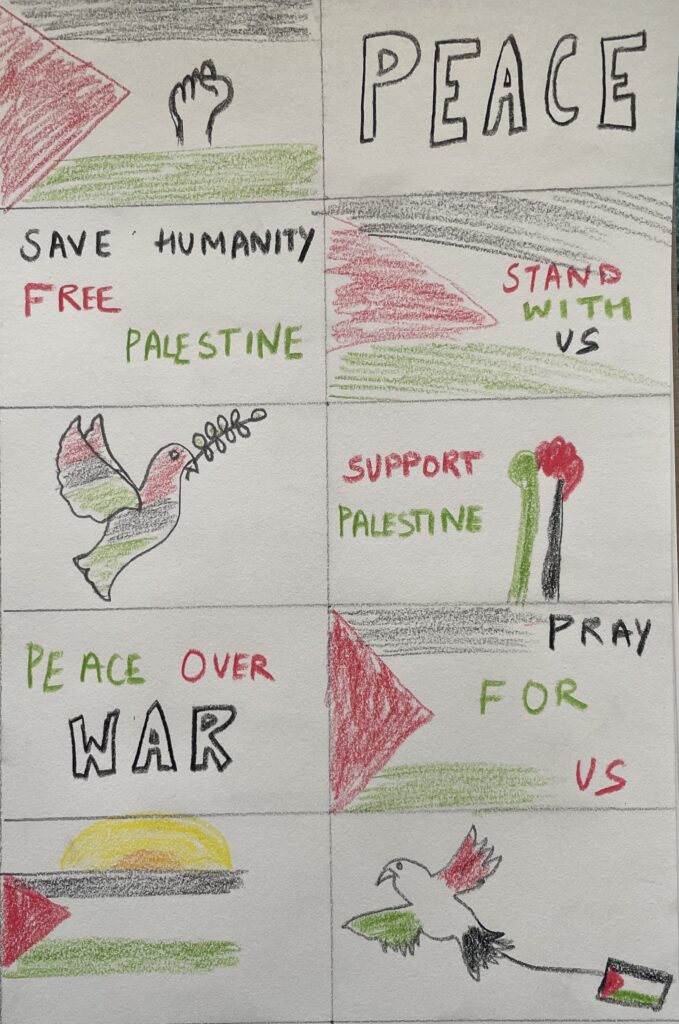 PEACE
SAVE HUMANITY
FREE
PALESTINE
STAND
WITH
US
SUPPORT
PALESTINE
PEACE OVER
WAR
PRAY
FOR
US